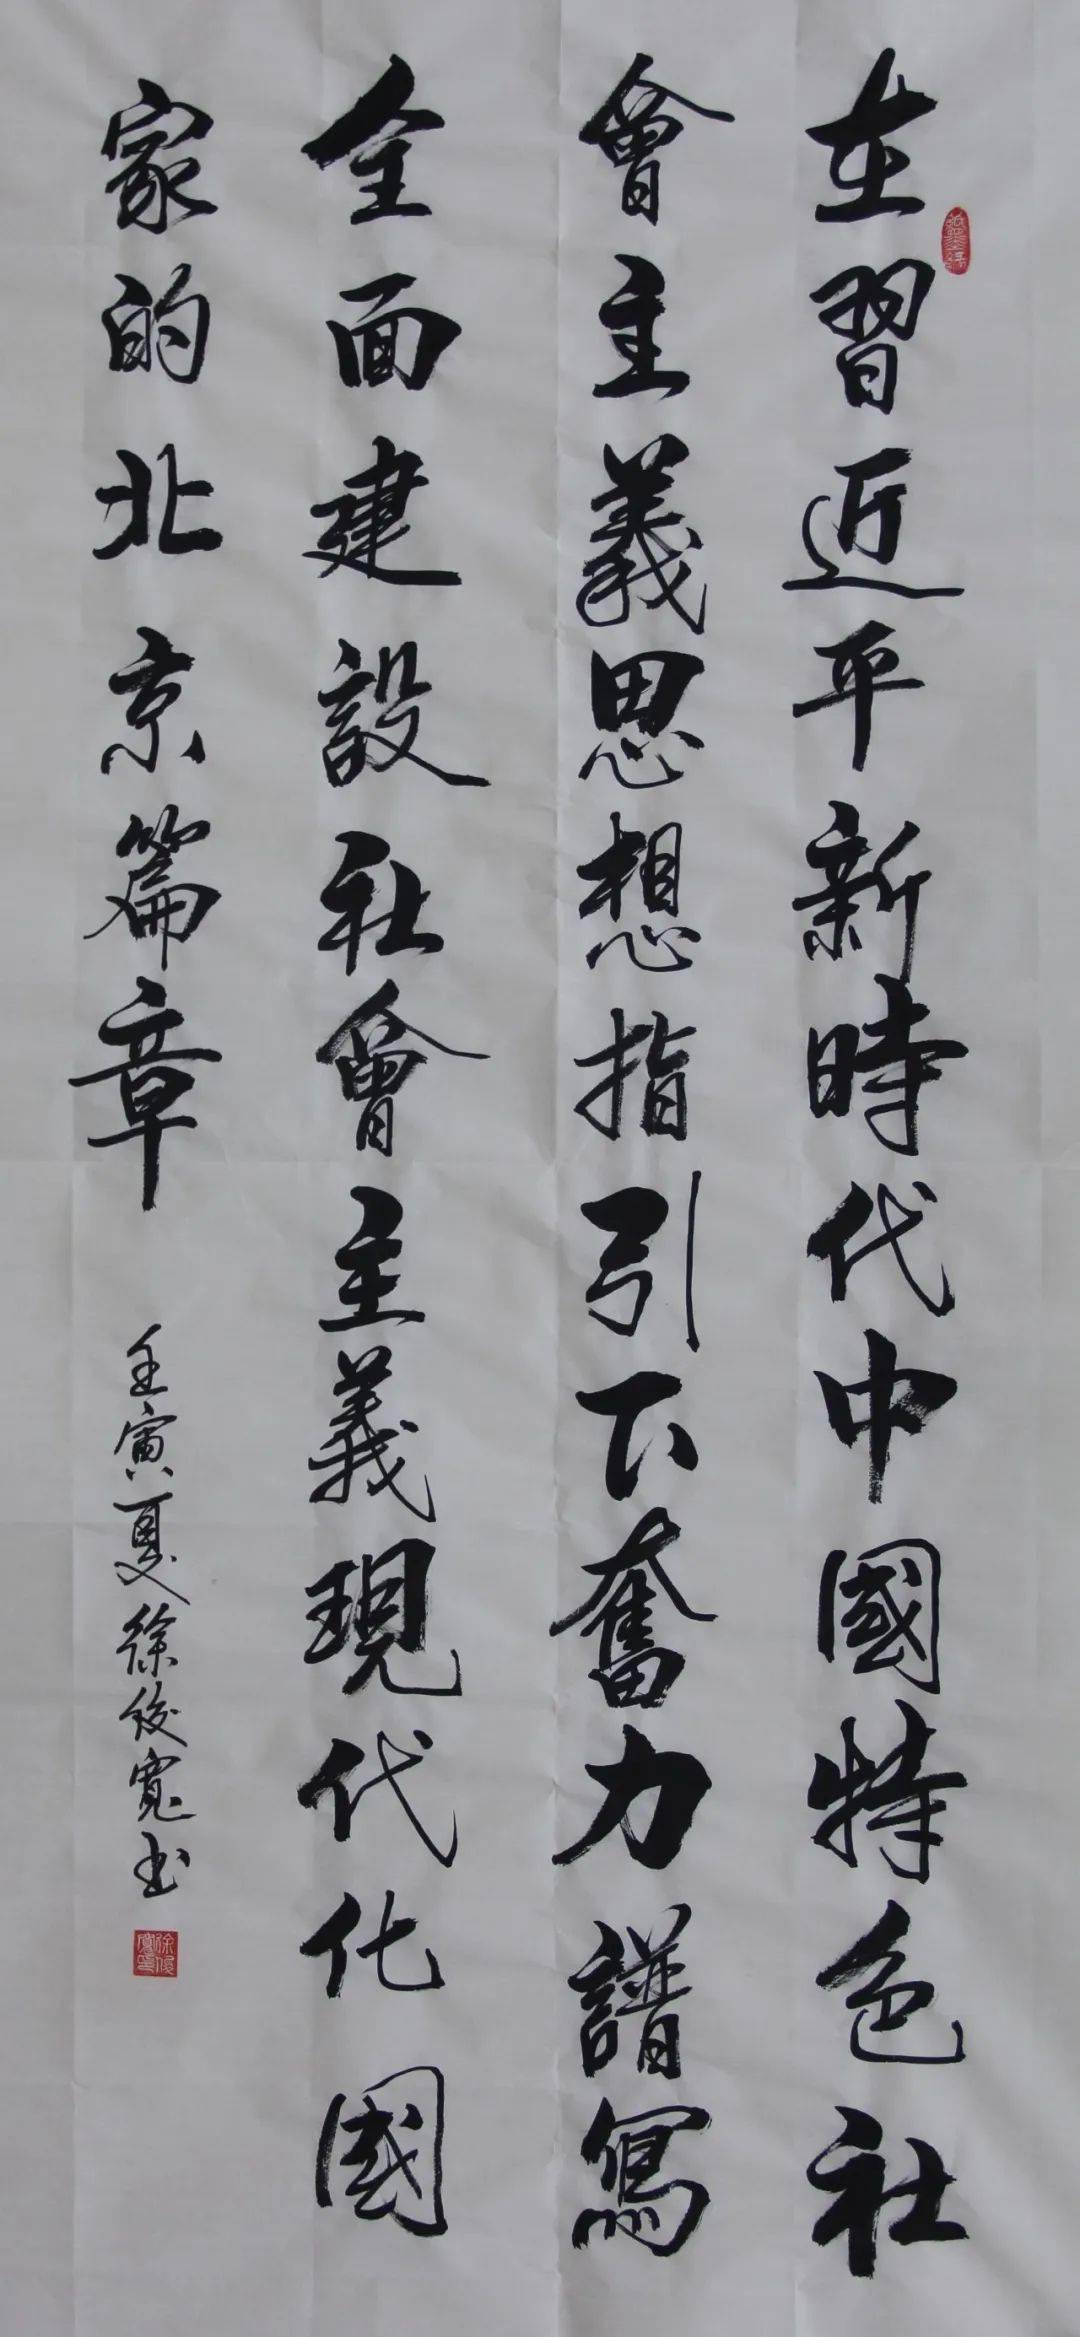 在習近平新時代中國特色社
會主義思想指引下奮力譜寫
全面建設社會主義現代化國
家的北京篇章
壬寅夏徐俊寬书